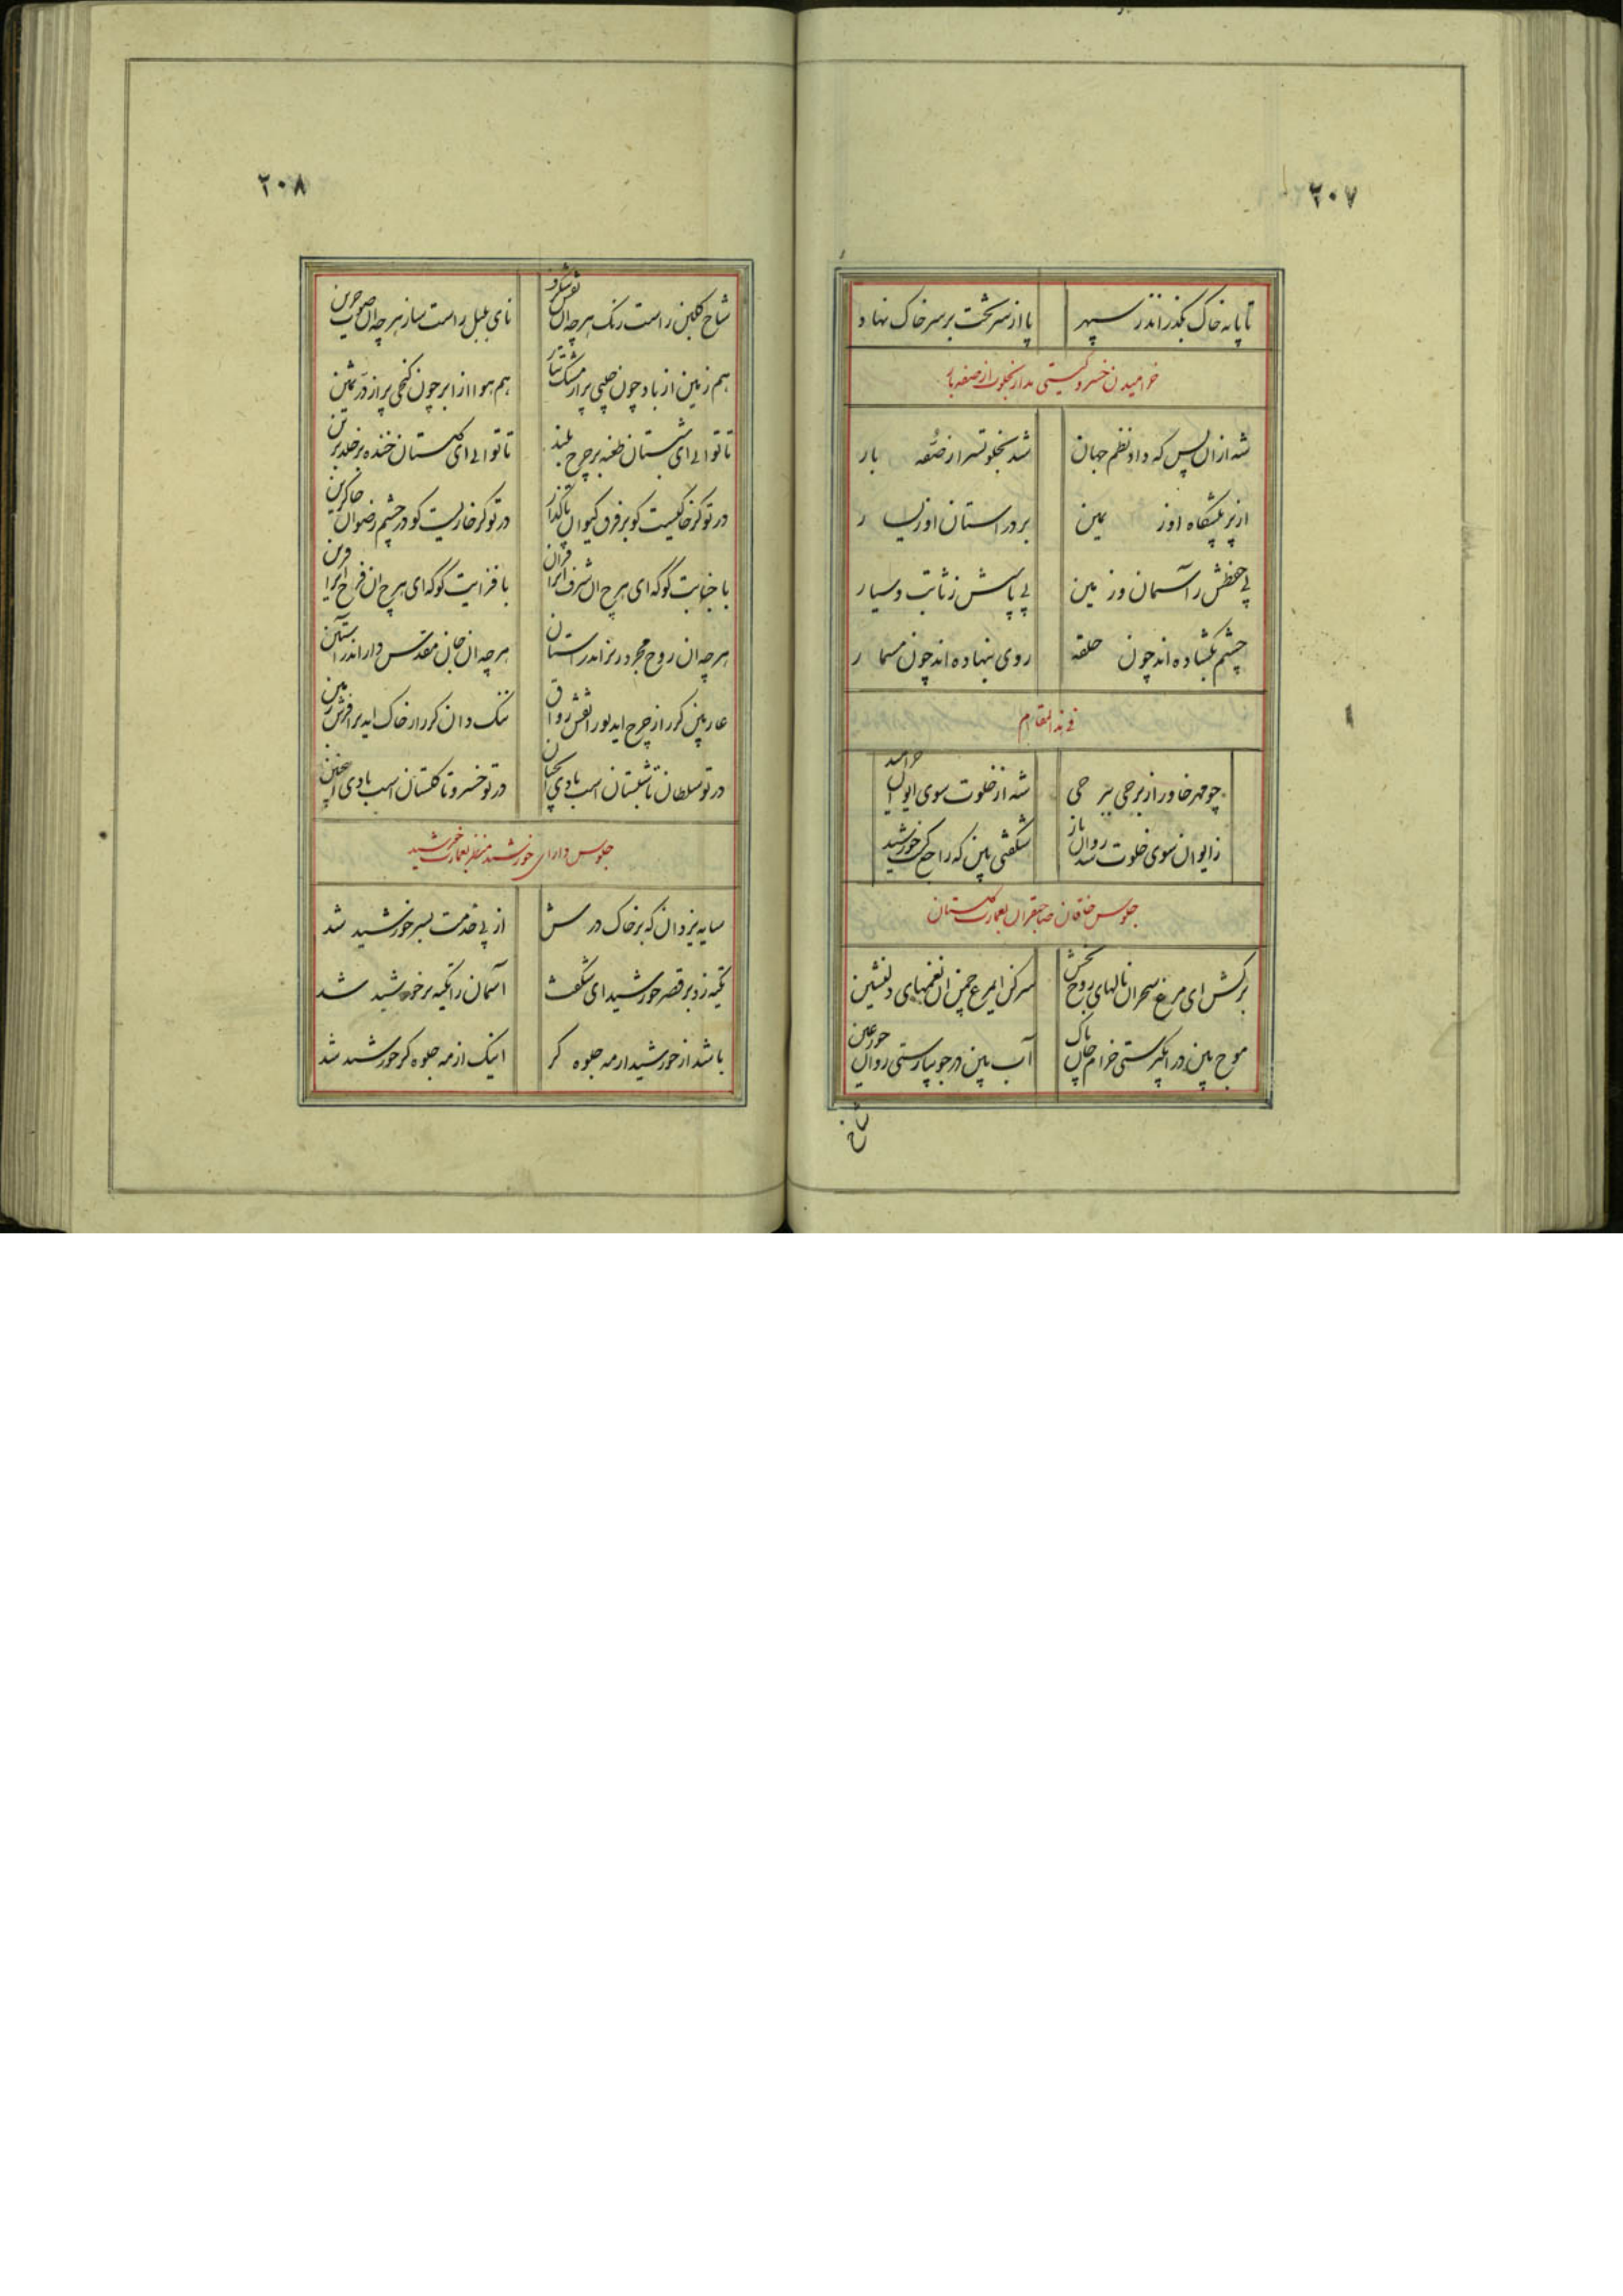 ۲۰۷
تا پایه خاک بگذراند ز سپهر پا از سر تخت بر سر خاک نهاد
خرامیدن خسرو گیتی مدار بخلوت از صفه بار
شه ازان پس که داد نظم جهان شد بخلوتسرا ز صُفه بار
از بر پیشگاه او ز یمین بر در استان او ز یسار
پی حفظش ز آسمان و ز زمین پی پاسش ز ثابت و سیار
چشم بگشاده اند چون حلقه روی بنهاده اند چون مسمار
فی هذا المقام
چو مهر خاور از برجی ببرجی شه از خلوت سوی ایوان خرامید
ز ایوان سوی خلوت شد روان باز شگفتی بین که راجع گشت خورشید
جلوس خاقان صاحبقران بعمارت گلستان
برکش ای مرغ سحر ان نالهای روح بخش سرکن ایمرغ چمن ان نغمهای دلنشین
موج بین در ابگیرستی خرام جان پاک آب بین در جویبارستی روان حور عین
شاخ
۲۰۸
شاخ گلبن راست رنگ هر چه ان نقش شگرف نای بلبل راست ساز هر چه ان صوت حزین
هم زمین از باد چون جیبی پر از مشک تتار هم هوا از ابر چون گنجی پر از در ثمین
تا تو ای شبستان طعنه بر چرخ بلند تا تو ای گلستان خنده بر خلد برین
در تو گر خاکیست کو بر فرق کیوان پا گذار در تو گر خاریست کو در چشم رضوان جا گزین
با جنابت گو که ای هرچ ان شرف انرا قران با فزایت گو که ای هرچ ان فرح انرا قرین
هر چه ان روح مجرد بر در اندر استان هر چه ان جان مقدس دار اندر آستین
عار بین گر از چرخ اید نور انقش رواق ننگ دان گر از خاک اید بر افرش زمین
در تو سلطان تا شبستان است بادی انچنان در تو خسرو تا گلستان است بادی اینچنین
جلوس دارای خورشید منظر بعمارت خورشید
سایه یزدان که بر خاک درش از پی خدمت بسر خورشید شد
تکیه زد بر قصر خورشید ای شگفت آسمان را تکیه بر خورشید شد
باشد از خورشید ار مه جلوه گر اینک از مه جلوه گر خورشید شد